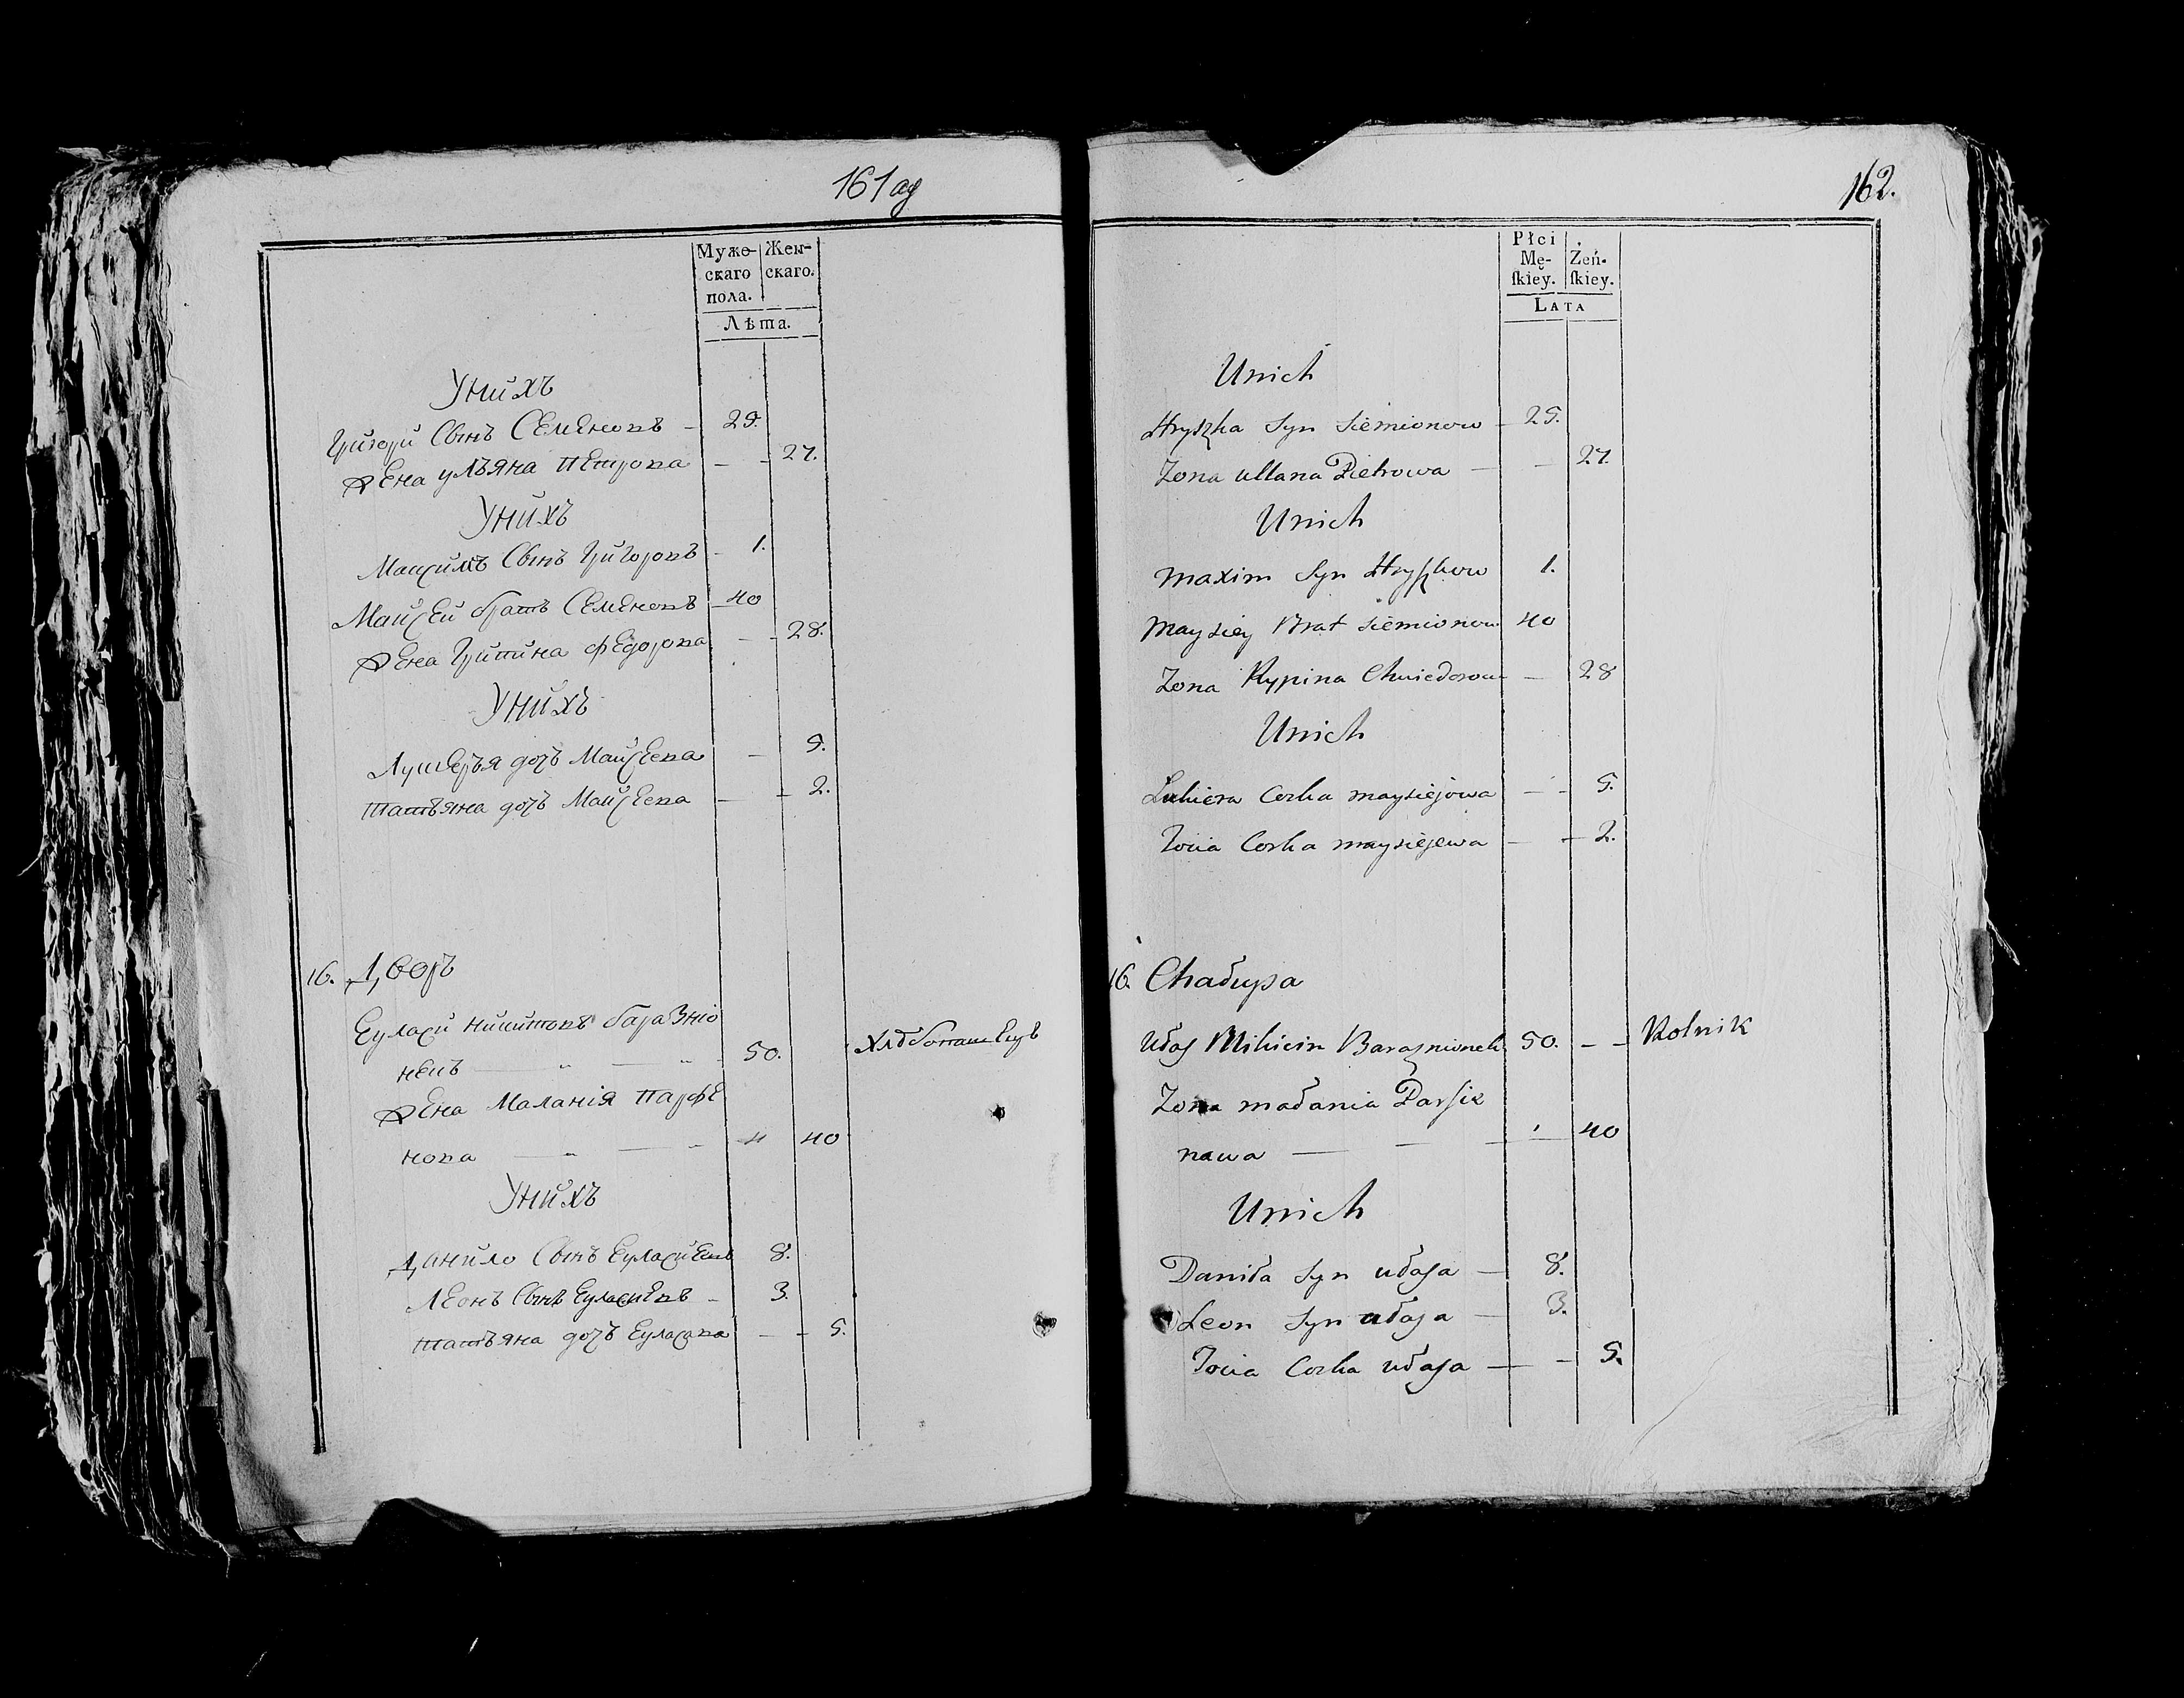 161 об
Муже-
скаго
пола.
Жен-
скаго.
Лѣта.
Унихъ
Григори Сынъ Семеновъ - 25.
Жена улъяна Петрова - - 27.
Унихъ
Максимъ Сынъ Григоровъ - 1.
Майсей братъ Семеновъ - 40
Жена Грипина Федорова - - 28.
Унихъ
Лукерья дочъ Майсеева - 5.
Татъяна дочъ Майсеева - - 2.
16. Дворъ
Еуласи Никитовъ баразніо
некъ - 50. Хлебопашецъ
Жена Маланія Парфе
нова - 40
Унихъ
Данило Сынъ Еуласиевъ 8.
Леонъ Сынъ Еуласиевъ - 3.
Татъяна дочъ Еуласова - - 5.
162.
Płci
Mę-
ſkiey.
Żeń-
ſkiey.
LATA
Unich
Hryszka Syn Siemionow - 25.
Zona Ullana Pietrowa - - 27.
Unich
Maxim Syn Hryszkow 1.
Maysiey Brat Siemionow 40
Zona Rypina Chwiedorowa - 28
Unich
Lukiera Corka maysiejowa - - 5.
Tocia Corka maysiejewa - - 2.
16. Chałupa
Ułas Mikicin Baraznionek 50. - - Rolnik
Zona małania Parfie
nawa - - - 40
Unich
Daniła Syn ułasa - 8.
Leon Syn ułasa - 3.
Tocia Corka ułasa - - 5.